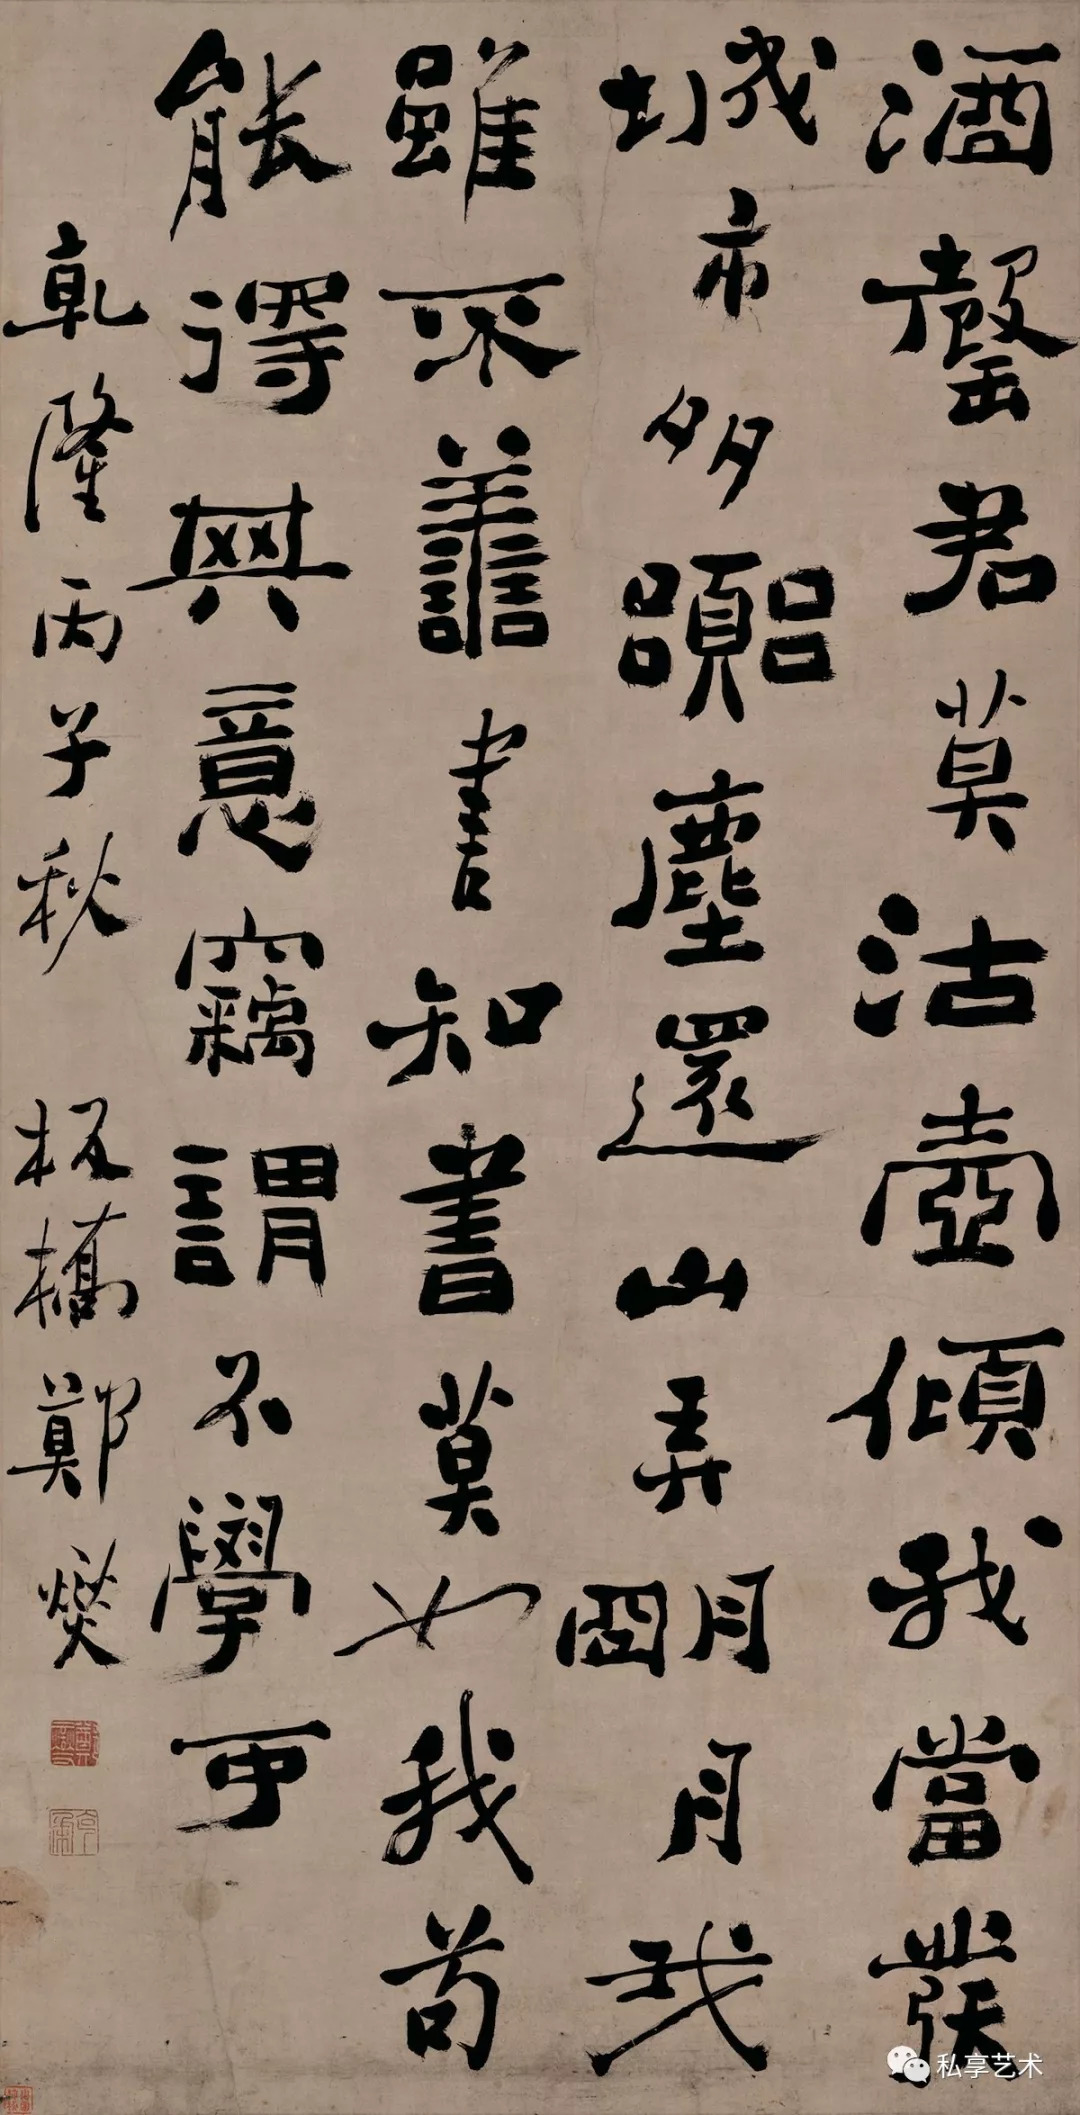 酒罄君莫沽壺傾我當發
城市多囂塵還山弄明月我
雖不善書知書莫如我苟
能得其意竊謂不學可
乾隆丙子秋 板橋鄭燮
私享艺术